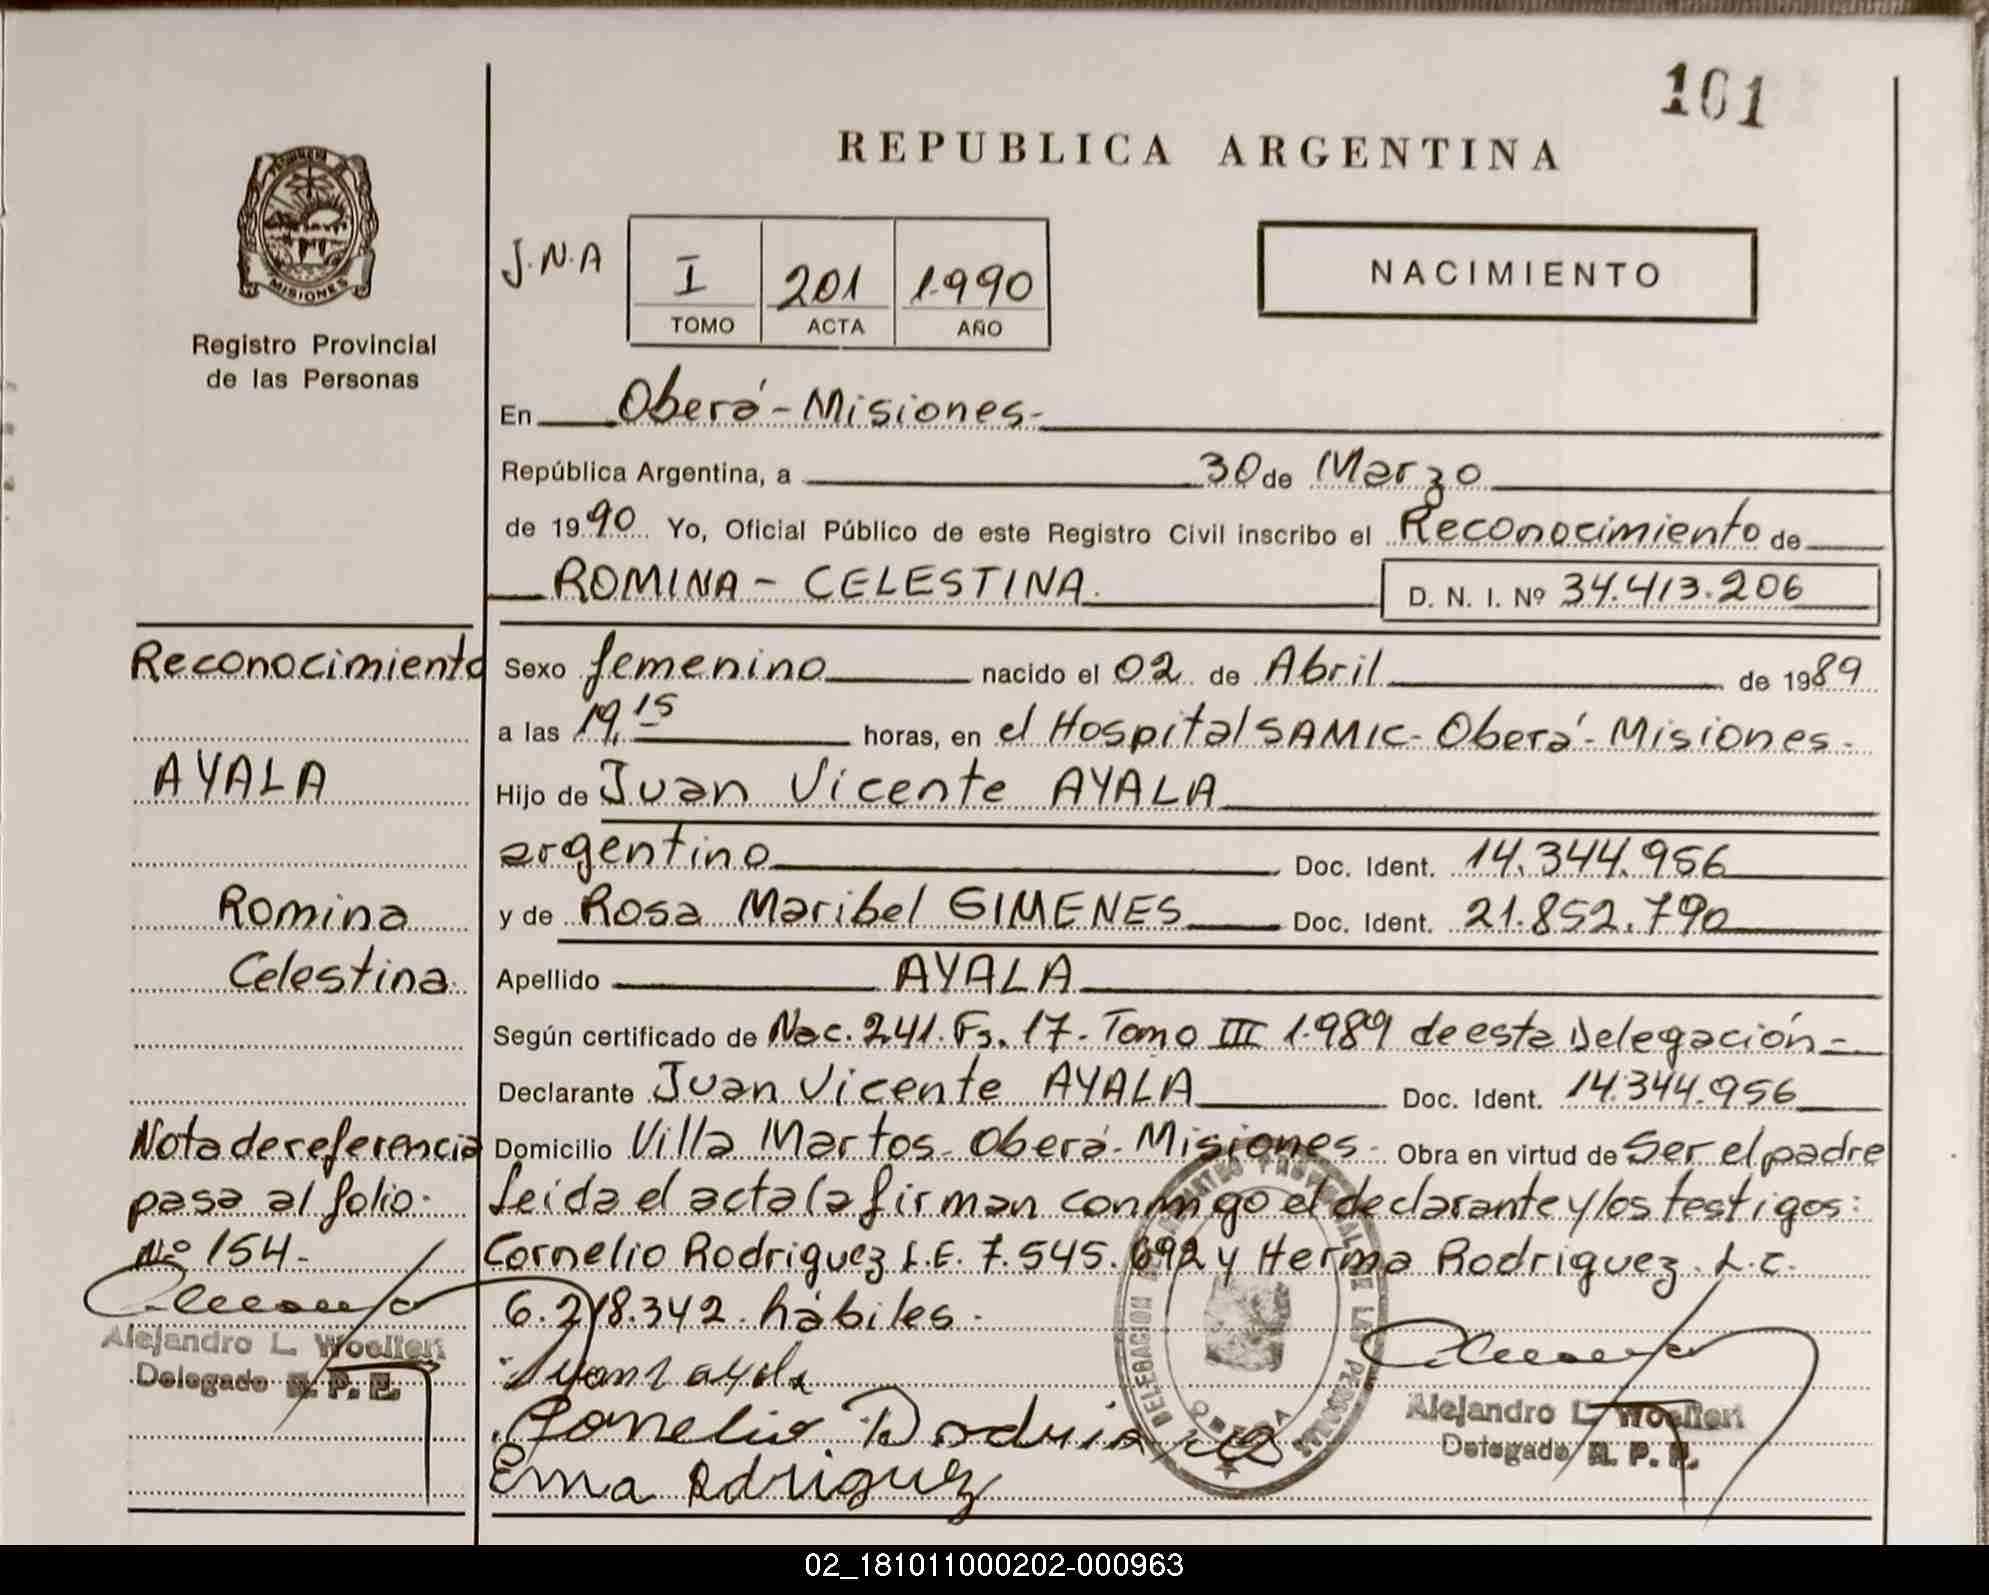 101
REPUBLICA ARGENTINA
MISIONES
Registro Provincial
de las Personas
J.N.A
I 201 1.990
TOMO ACTA AÑO
NACIMIENTO
En Oberá-Misiones-
República Argentina, a 30 de Marzo
de 1990 Yo, Oficial Público de este Registro Civil inscribo el Reconocimiento de
ROMINA - CELESTINA. D. N. I. Nº 34.413.206
Sexo femenino nacido el 02 de Abril de 1989
a las 19,15 horas, en el Hospital SAMIC- Oberá- Misiones-
Hijo de Juan Vicente AYALA
argentino Doc. Ident. 14.344.956
y de Rosa Maribel GIMENES Doc. Ident. 21.852.790
Apellido AYALA
Según certificado de Nac. 241. Fs. 17- Tomo III 1.989 de esta Delegación-
Declarante Juan Vicente AYALA Doc. Ident. 14.344.956
Domicilio Villa Martos- Oberá- Misiones- Obra en virtud de Ser el padre
Leída el acta la firman conmigo el declarante y los testigos:
Cornelio Rodriguez L.E. 7.545.692 y Herma Rodriguez. L.C.
6.218.342. hábiles-
Reconocimiento
AYALA
Romina
Celestina.
Nota de referencia
pasa al folio:
Nº 154-
Alejandro L.
Delegado R. P. P.
Juan ayala
Cornelio Rodriguez
Erma Rodriguez
DELEGACION PROVINCIAL DE LAS PERSONAS
OBERA
Alejandro L.
Delegado R. P. P.
02_181011000202-000963